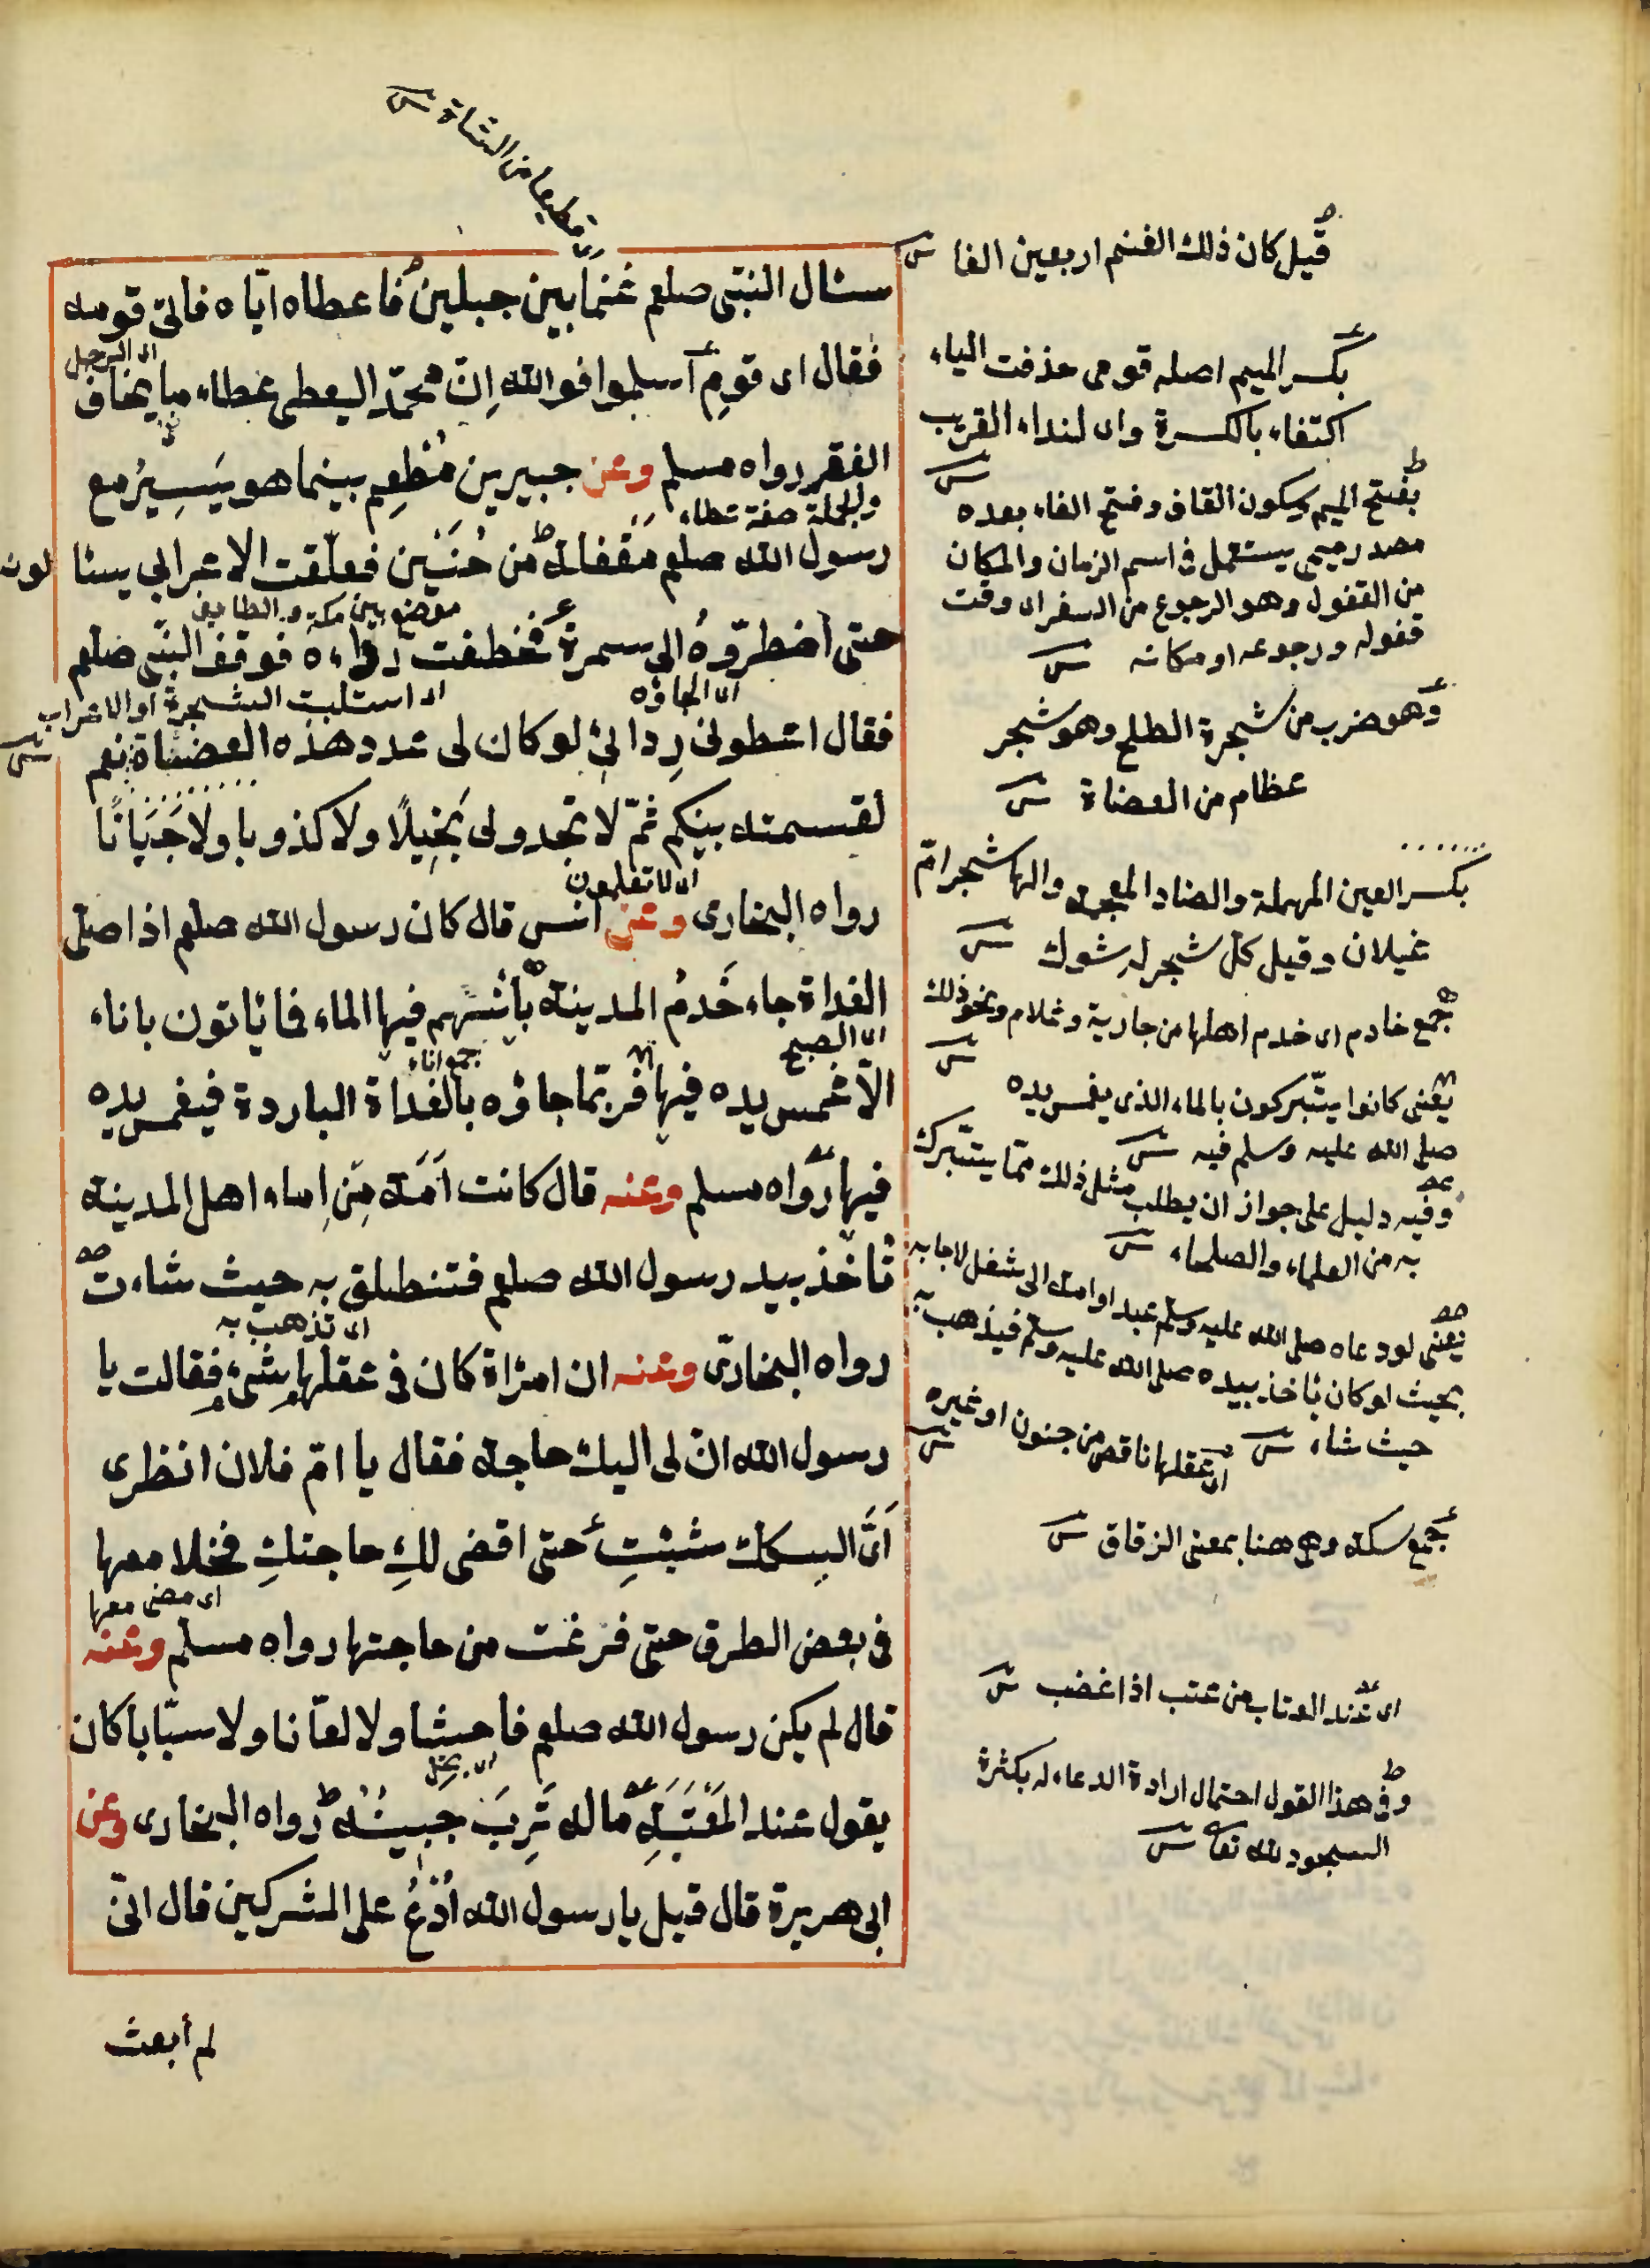 اى قطيعا من الشاة ش
سئال النبى صلعم غنما بين جبلين فاعطاه اياه فاتى قومه
فقال اى قوم اسلموا فوالله ان محمدا ليعطى عطاء ما يخاف
اى الرجل
الفقر رواه مسلم وعن جبير بن مطعم بينما هو يسير مع
والجملة صفة عطاء
رسول الله صلعم مقفله من حنين فعلقت الاعرابى يسئا لونه
موضع بين مكة والطائف
حتى اضطروه الى سمرة فخطفت رداءه فوقف النبى صلعم
اى الجاؤه
اى استلبت الشجرة او الاعراب ش
فقال اعطونى ردائى لو كان لى عدد هذه العضاة نعم
لقسمته بينكم ثم لا تجدونى بخيلا ولا كذوبا ولا جبانا
رواه البخارى وعن انس قال كان رسول الله صلعم اذا صلى
اى لا تعلمون
الغداة جاء خدم المدينة بآنيتهم فيها الماء فما ياتون باناء
اى الصبح
جمع اناء
الا غمس يده فيها فربما جاؤه بالغداة الباردة فيغمس يده
فيها رواه مسلم وعنه قال كانت امة من اماء اهل المدينة
تاخذ بيد رسول الله صلعم فتنطلق به حيث شاءت
اى تذهب به
رواه البخارى وعنه ان امراة كان فى عقلها شئ فقالت يا
رسول الله ان لى اليك حاجة فقال يا ام فلان انظرى
اى السكك شئت حتى اقضى لك حاجتك فخلا معها
اى مضى معها
فى بعض الطرق حتى فرغت من حاجتها رواه مسلم وعنه
قال لم يكن رسول الله صلعم فاحشا ولا لعانا ولا سبابا كان
يقول عند المعتبة ماله ترب جبينه رواه البخارى وعن
ابى هريرة قال قيل يا رسول الله ادع على المشركين قال انى
لم أبعث
قيل كان ذلك الغنم اربعين الفا ش
بكسر الميم اصله قومى حذفت الياء
اكتفاء بالكسرة واى لنداء القريب ش
بفتح الميم وسكون القاف وفتح الفاء بعده
مصدر ميمى يستعمل فى اسم الزمان والمكان
من القفول وهو الرجوع من السفر اى وقت
قفوله ورجوعه او مكانه ش
وهو ضرب من شجرة الطلح وهو شجر
عظام من العضاة ش
بكسر العين المهملة والضاد المعجمة والها شجر ام
غيلان وقيل كل شجر له شوك ش
جمع خادم اى خدم اهلها من جارية وغلام ونحو ذلك ش
يعنى كانوا يتبركون بالماء الذى يغمس يده
صلى الله عليه وسلم فيه ش
وفيه دليل على جواز ان يطلب مثل ذلك مما يتبرك
به من العلماء والصلحاء ش
يعنى لو دعاه صلى الله عليه وسلم عبد او امة الى شغل لاجابه
بحيث لو كان ياخذ بيده صلى الله عليه وسلم فيذهب به
حيث شاء ش
اى عقلها ناقص من جنون او غيره ش
جمع سكة وهى هنا بمعنى الزقاق ش
اى عند العتاب من عتب اذا غضب ش
وفى هذا القول احتمال ارادة الدعاء له بكثرة
السجود لله تعا ش